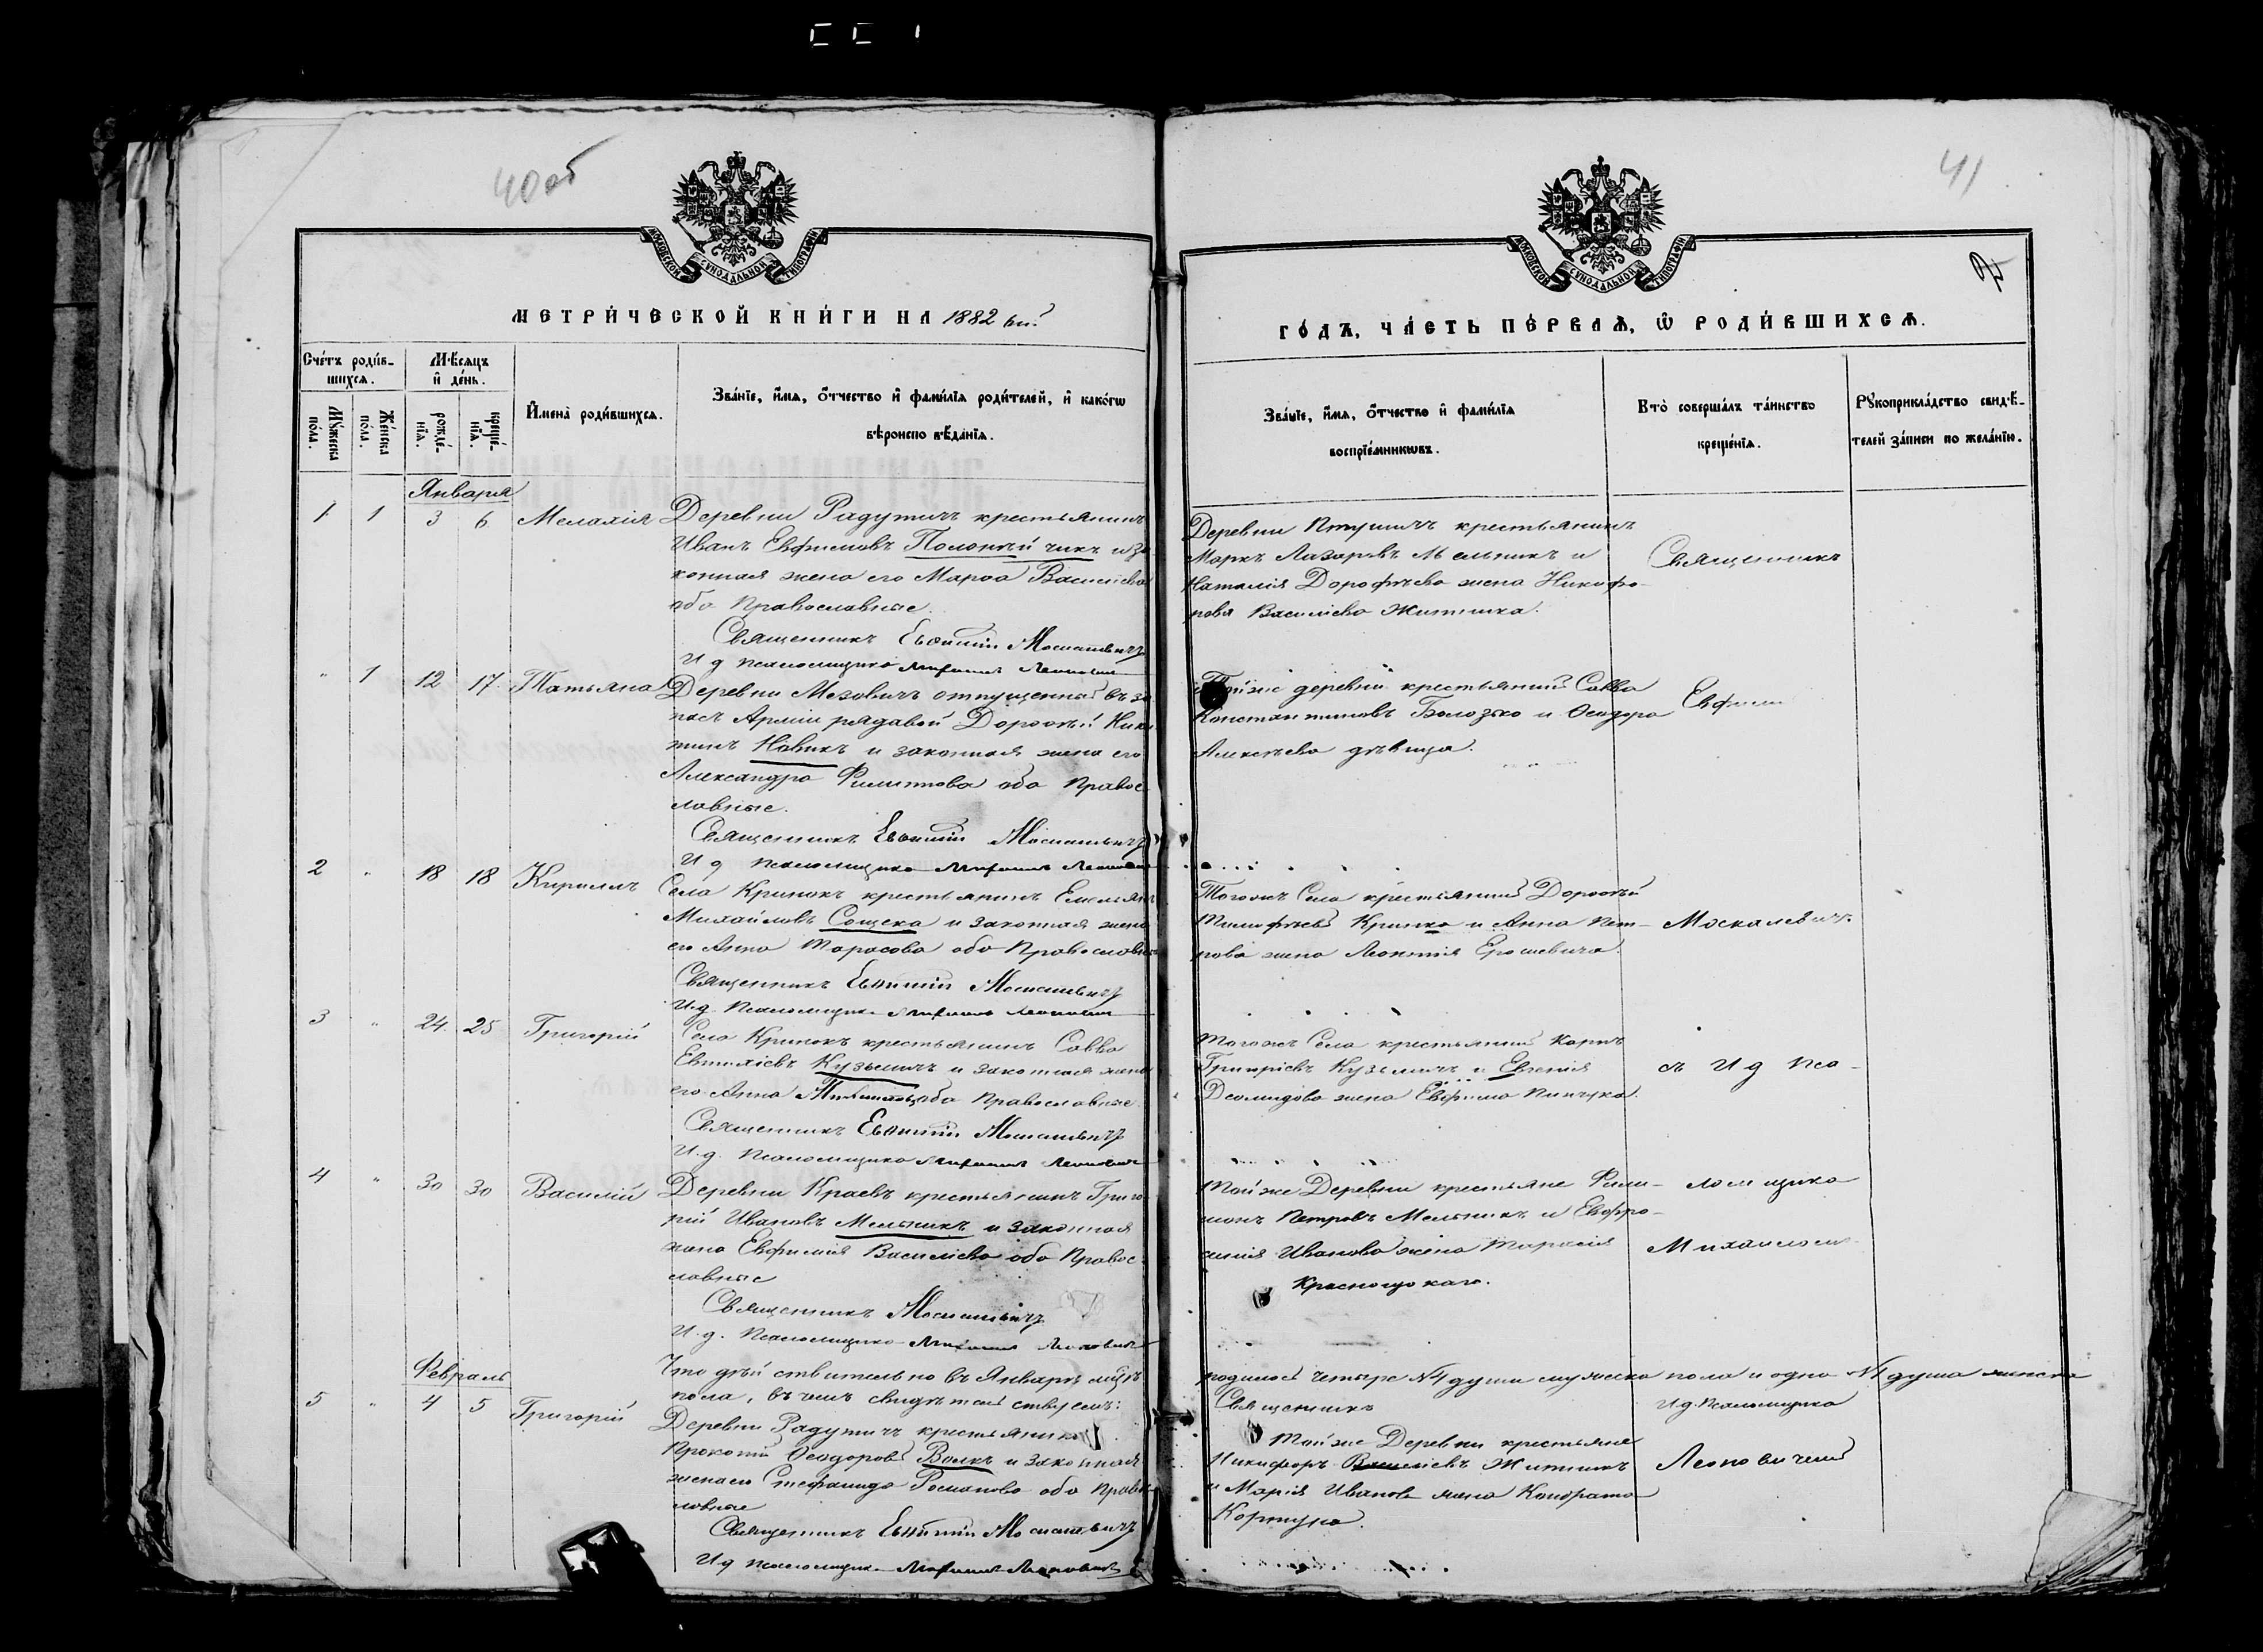 40 об
41
МОСКОВСКОЙ СѴНОДАЛЬНОЙ ТИПОГРАФІИ
МОСКОВСКОЙ СѴНОДАЛЬНОЙ ТИПОГРАФІИ
2
МЕТРИ́ЧЕСКОЙ КНИ́ГИ НА 1882 ый
ГО́ДЪ, ЧА́СТЬ ПЕ́РВАѦ, Ѡ РОДИ́ВШИХСѦ.
Сче́тъ роди́в-
шихсѧ.
Мѣсѧцъ
и де́нь.
Мꙋжеска
пола.
Же́нска
по́ла.
рожде́-
нїѧ.
креще́-
нїѧ.
И҆мена̀ роди́вшихсѧ.
Зва́нїе, и҆́мѧ, ѻ҆́тчество и҆ фами́лїѧ роди́телей, и҆ како́гѡ
вѣроиспо вѣ́данїѧ.
Зва́нїе, и҆́мѧ, ѻ҆́тчество и҆ фами́лїѧ
воспрїе́мникѡвъ.
Кто̀ соверша́лъ та́инство
креще́нїѧ.
Рꙋкоприкла́дство свидѣ́-
телей за́писи по жела́нїю.
Января
1 1 3 6 Мелахія Деревни Радутичъ крестьянинъ
Иванъ Евфимовъ Полончй чикъ и за
конная жена его Марѳа Василіева
оба Православные.
Священникъ Евѳимій Москалевичъ
И д псаломщика Михаилъ Леонович
Деревни Птушичъ крестьянинъ
Маркъ Лазаревъ Мельникъ и
Наталія Дорофѣева жена Никифо-
рова Василіева Житника.
Священникъ
" 1 12 17 Татьяна Деревни Мезовичъ отпущенный въ за
пасъ Арміи рядавой Дороѳѣй Ники
тинъ Новикъ и законная жена его
Александра Филиппова оба Правос
лавные.
Священникъ Евѳимій Москалевичъ
И д псаломщика Михаилъ Леонович
Тойже деревни крестьянинъ Савва
Константиновъ Болозько и Ѳеодора
Алексѣева дѣвица.
Евфими
2 " 18 18 Кириллъ Села Кринокъ крестьянинъ Емельянъ
Михайловъ Сощека и законная жена
его Анна Тарасова оба Православные
Священникъ Евѳимій Москалевичъ
И.д. Псаломщика Михаилъ Леонович
Тогожъ Села крестьянинъ Дороѳѣй
Тимофѣевъ Кринко и Анна Пет-
рова жена Леонтія Ерошевича.
Москалевичъ
3 " 24 25 Григорій Села Кринокъ крестьянинъ Савва
Евтихіевъ Кузьмичъ и законная жена
его Анна оба Православные
Священникъ Евѳимій Москалевичъ
И.д. Псаломщика Михаилъ Леонович
Тогожъ Села крестьянинъ Карпъ
Григоріевъ Кузьмичъ и Евгенія
Деомидова жена Евфима Пинчука.
съ И д Пса-
4 " 30 30 Василій Деревни Краевъ крестьянинъ Григо
рій Ивановъ Мельникъ и законная
жена Евфимія Василіева оба Правос
лавные
Священникъ Москалевичъ
И.д. Псаломщика Михаилъ Леонович
Тойже Деревни крестьяне Фили-
монъ Петровъ Мельникъ и Евфро-
синія Иванова жена Тарасія
Красноцкаго.
ломщика
Михаиломъ
Что дѣйствительно въ Январѣ мцѣ родилось четыре №4 души мужеска пола и одна №1 душа женска
пола, въ чемъ свидѣтельствуемъ: Священникъ И.д. Псаломщика
Февраль
5 " 4 5 Григорій Деревни Радутичъ крестьянинъ
Прокопій Ѳеодоровъ Волкъ и законная
жена его Стефанида Романова оба Правос
лавные
Священникъ Евѳимій Москалевичъ
И д псаломщика Михаилъ Леонович
Тойже Деревни крестьяне
Никифоръ Василіевъ Житникъ
и Марія Иванова жена Кондрата
Корпуна.
Леоновичемъ